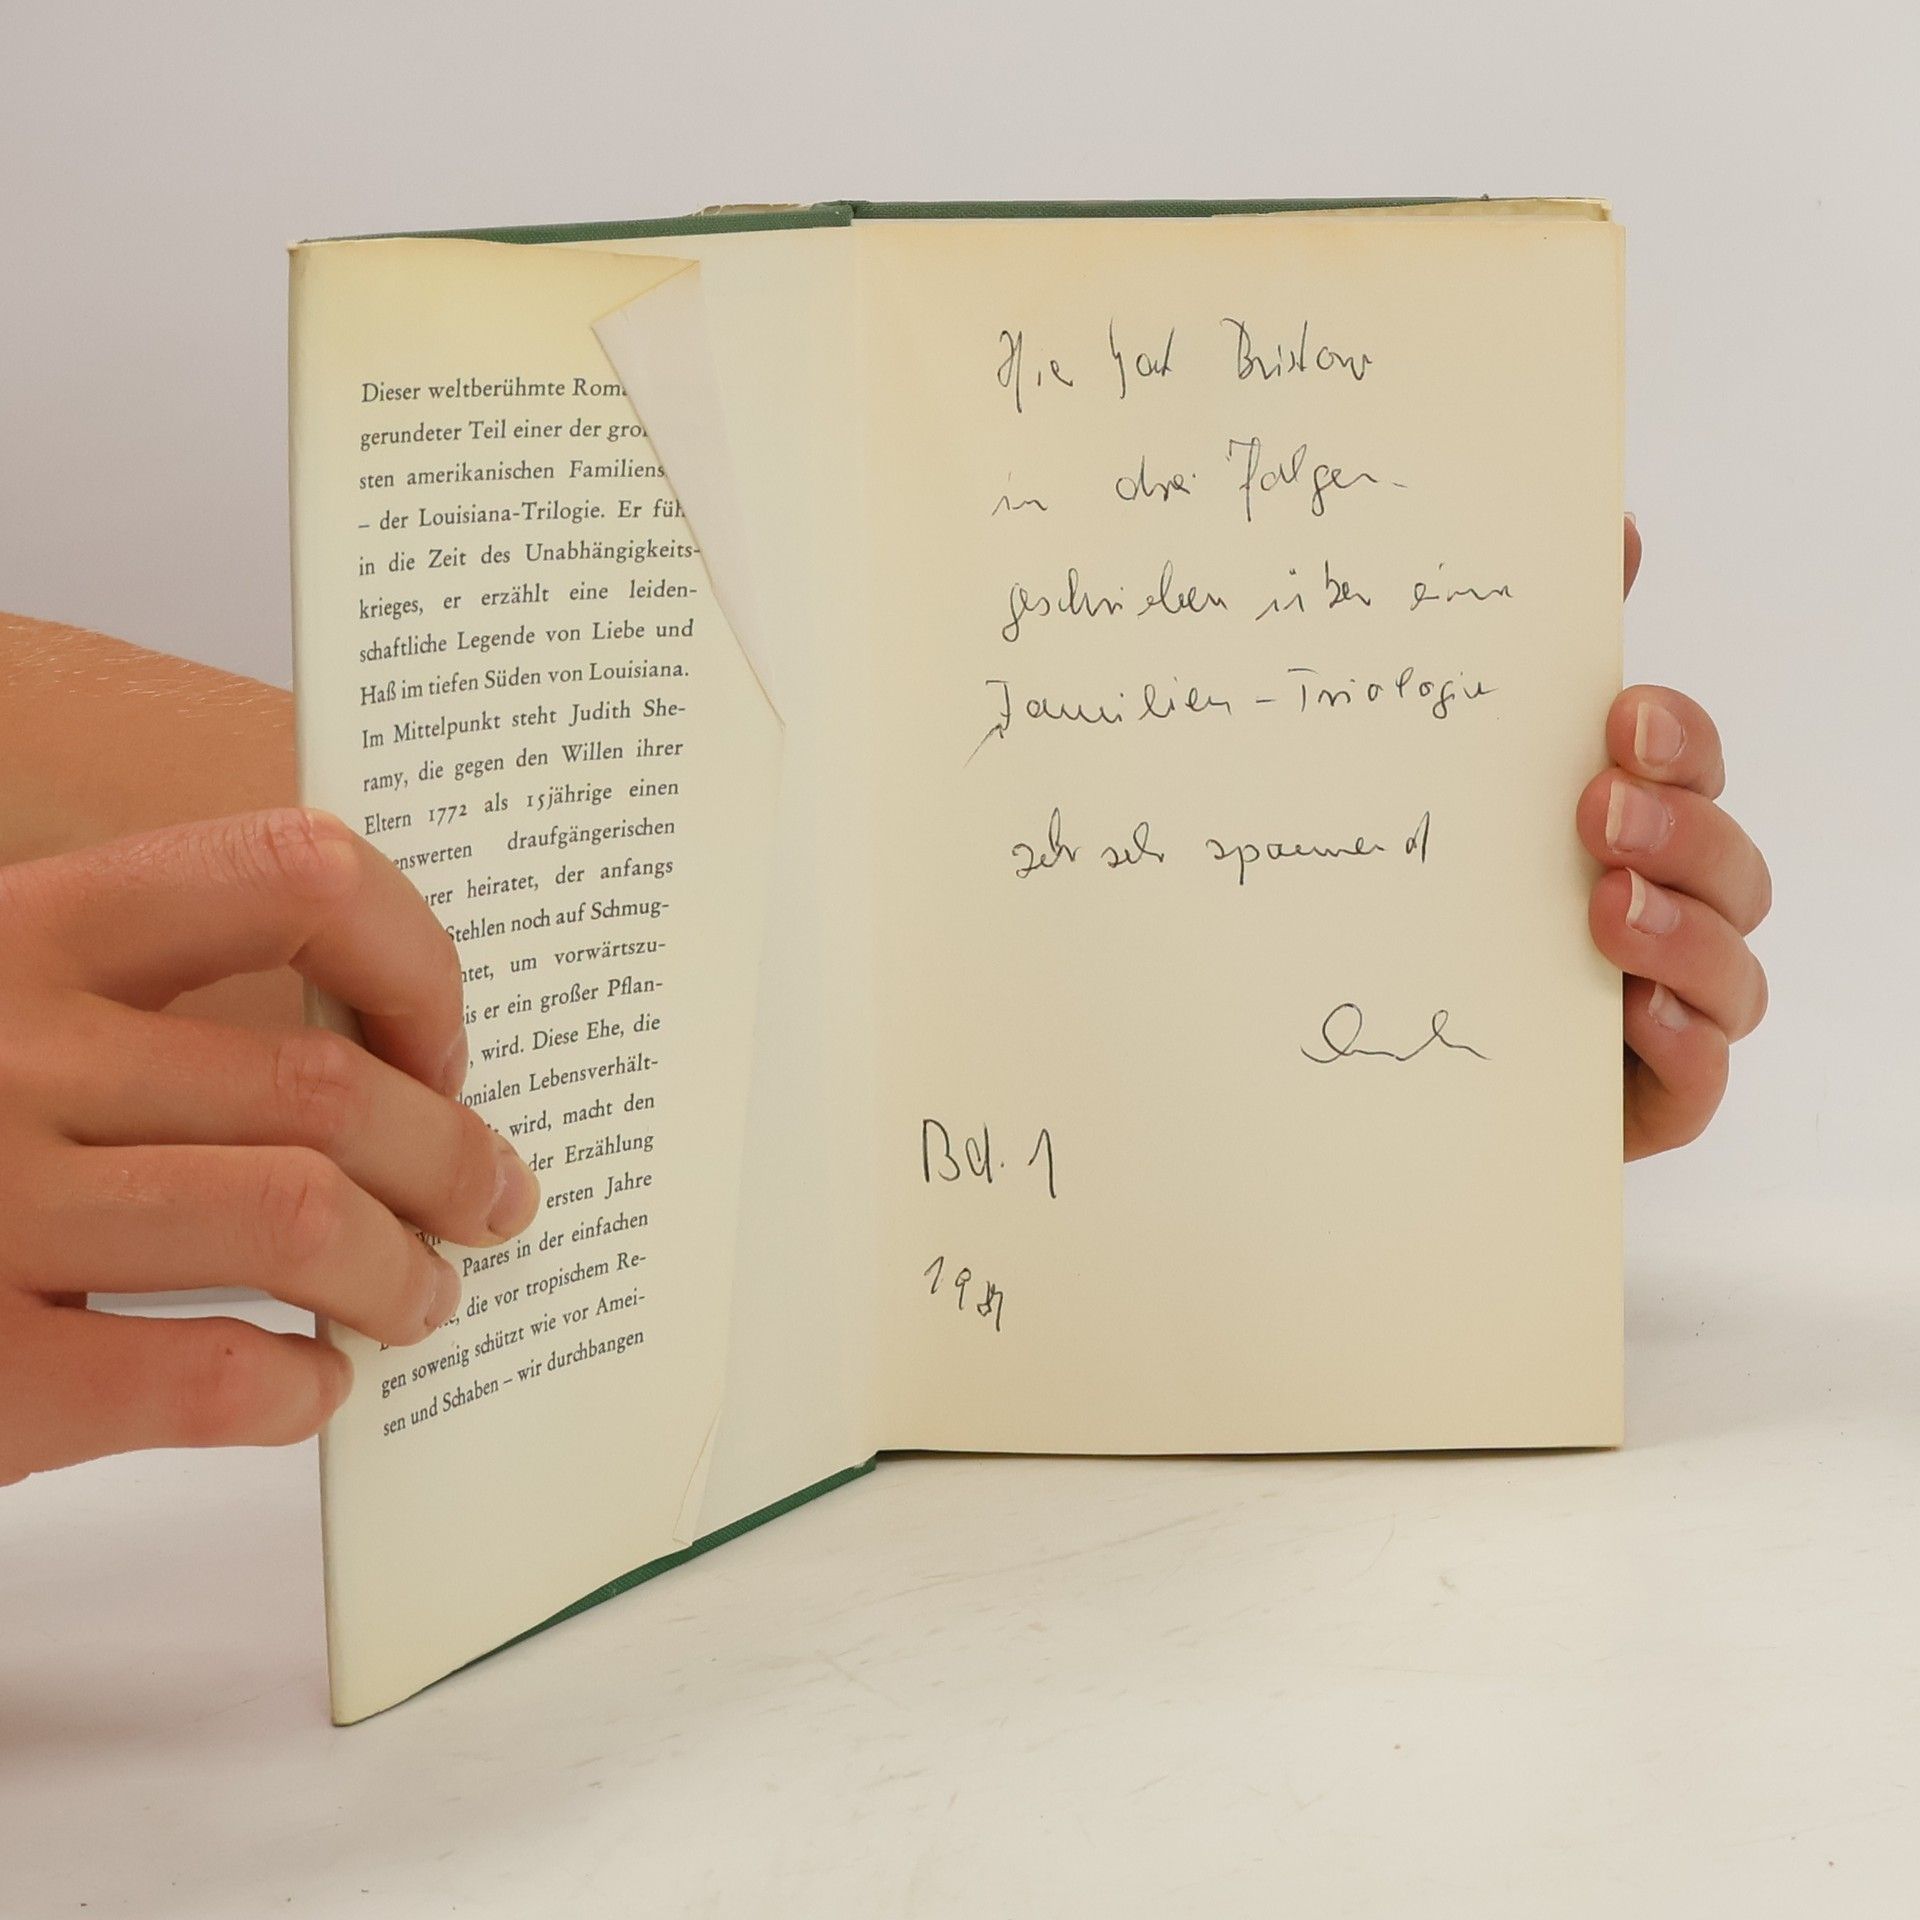 Dieser weltberühmte Rom
gerundeter Teil einer der gro
sten amerikanischen Familiens
– der Louisiana-Trilogie. Er füh
in die Zeit des Unabhängigkeits-
krieges, er erzählt eine leiden-
schaftliche Legende von Liebe und
Haß im tiefen Süden von Louisiana.
Im Mittelpunkt steht Judith She-
ramy, die gegen den Willen ihrer
Eltern 1772 als 15jährige einen
enswerten draufgängerischen
urer heiratet, der anfangs
Stehlen noch auf Schmug-
htet, um vorwärtszu-
is er ein großer Pflan-
, wird. Diese Ehe, die
lonialen Lebensverhält-
wird, macht den
der Erzählung
ersten Jahre
Paares in der einfachen
die vor tropischem Re-
gen sowenig schützt wie vor Amei-
sen und Schaben – wir durchbangen
Hie hat Bristow
in drei Folgen
geschrieben über eine
Familien-Triologie
sehr sehr spannend
Bd. 1